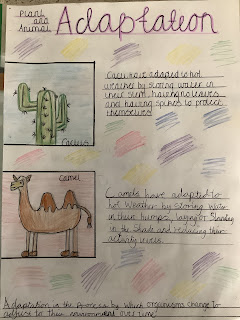 Plant
and
Animal
Adaptation
Cacti have adapted to hot
weather by storing water in
their stem, having no leaves
and having spines to protect
themselves
Cactus
Camel
Camels have adapted to
hot weather by storing water
in their humps, laying or standing
in the shade and reducing their
activity levels.
Adaptation is the process by which organisms change to
adjust to their environment over time